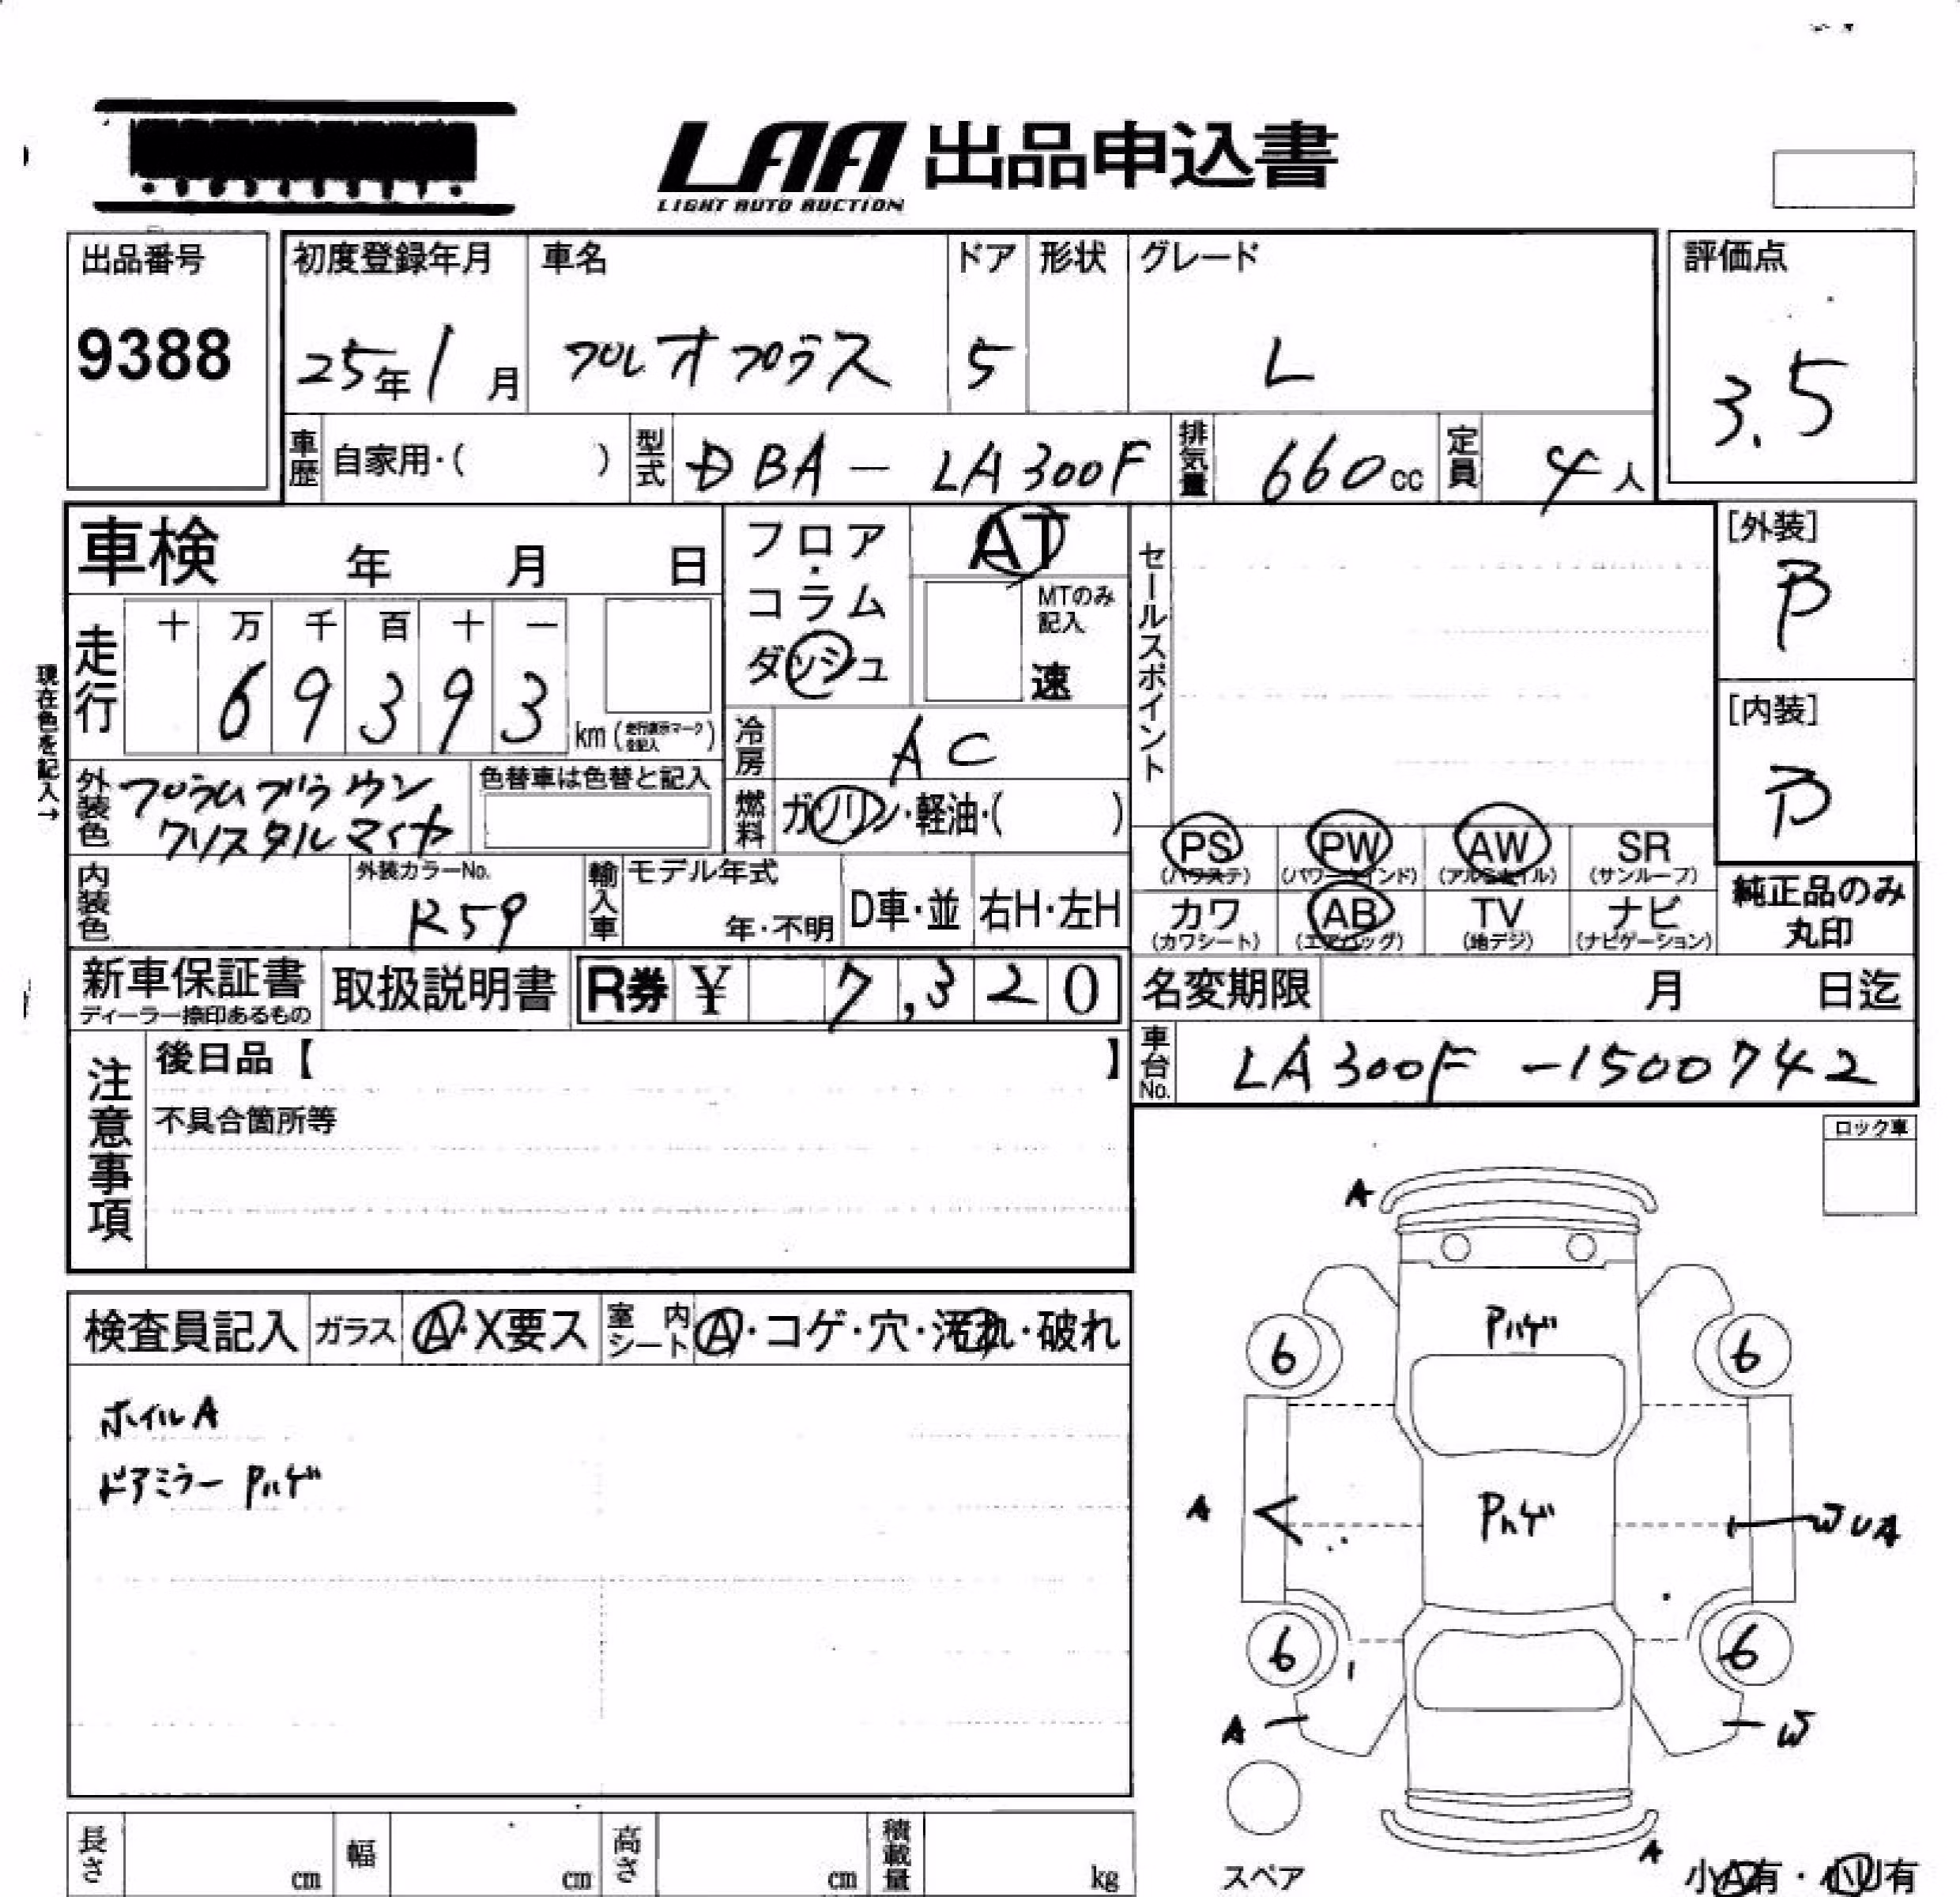 LAA 出品申込書
LIGHT AUTO AUCTION
出品番号 初度登録年月 車名 ドア 形状 グレード 評価点
9388 25年1月 プレオプラス 5 L 3.5
車歴 自家用・( ) 型式 DBA-LA300F 排気量 660cc 定員 4人
車検 年 月 日 フロア・コラム ダッシュ AT セールスポイント [外装]
B
MTのみ記入
速
走行 十 万 千 百 十 一
69393 km (走行表示マークを記入)
[内装]
B
現在色を記入→
冷房 AC
外装色 プラムブラウン
クリスタルマイカ
色替車は色替と記入
燃料 ガソリン・軽油・( )
PS (パワステ) PW (パワーウインド) AW (アルミホイル) SR (サンルーフ)
カワ (カワシート) AB (エアバッグ) TV (地デジ) ナビ (ナビゲーション)
純正品のみ
丸印
内装色 外装カラーNo. R59 輸入車 モデル年式 年・不明 D車・並 右H・左H
新車保証書 取扱説明書 R券 ¥ 7,320 名変期限 月 日迄
ディーラー捺印あるもの
車台No. LA300F-1500742
注意事項 後日品【 】
不具合箇所等
ロック車
検査員記入 ガラス A・X要ス 室内シート A・コゲ・穴・汚れ・破れ
ホイルA
ドアミラー Pハゲ
A
Pハゲ
6 6
Pハゲ
A WUA
6 6
A W
A
スペア
小A有・小U有
長さ cm 幅 cm 高さ cm 積載量 kg